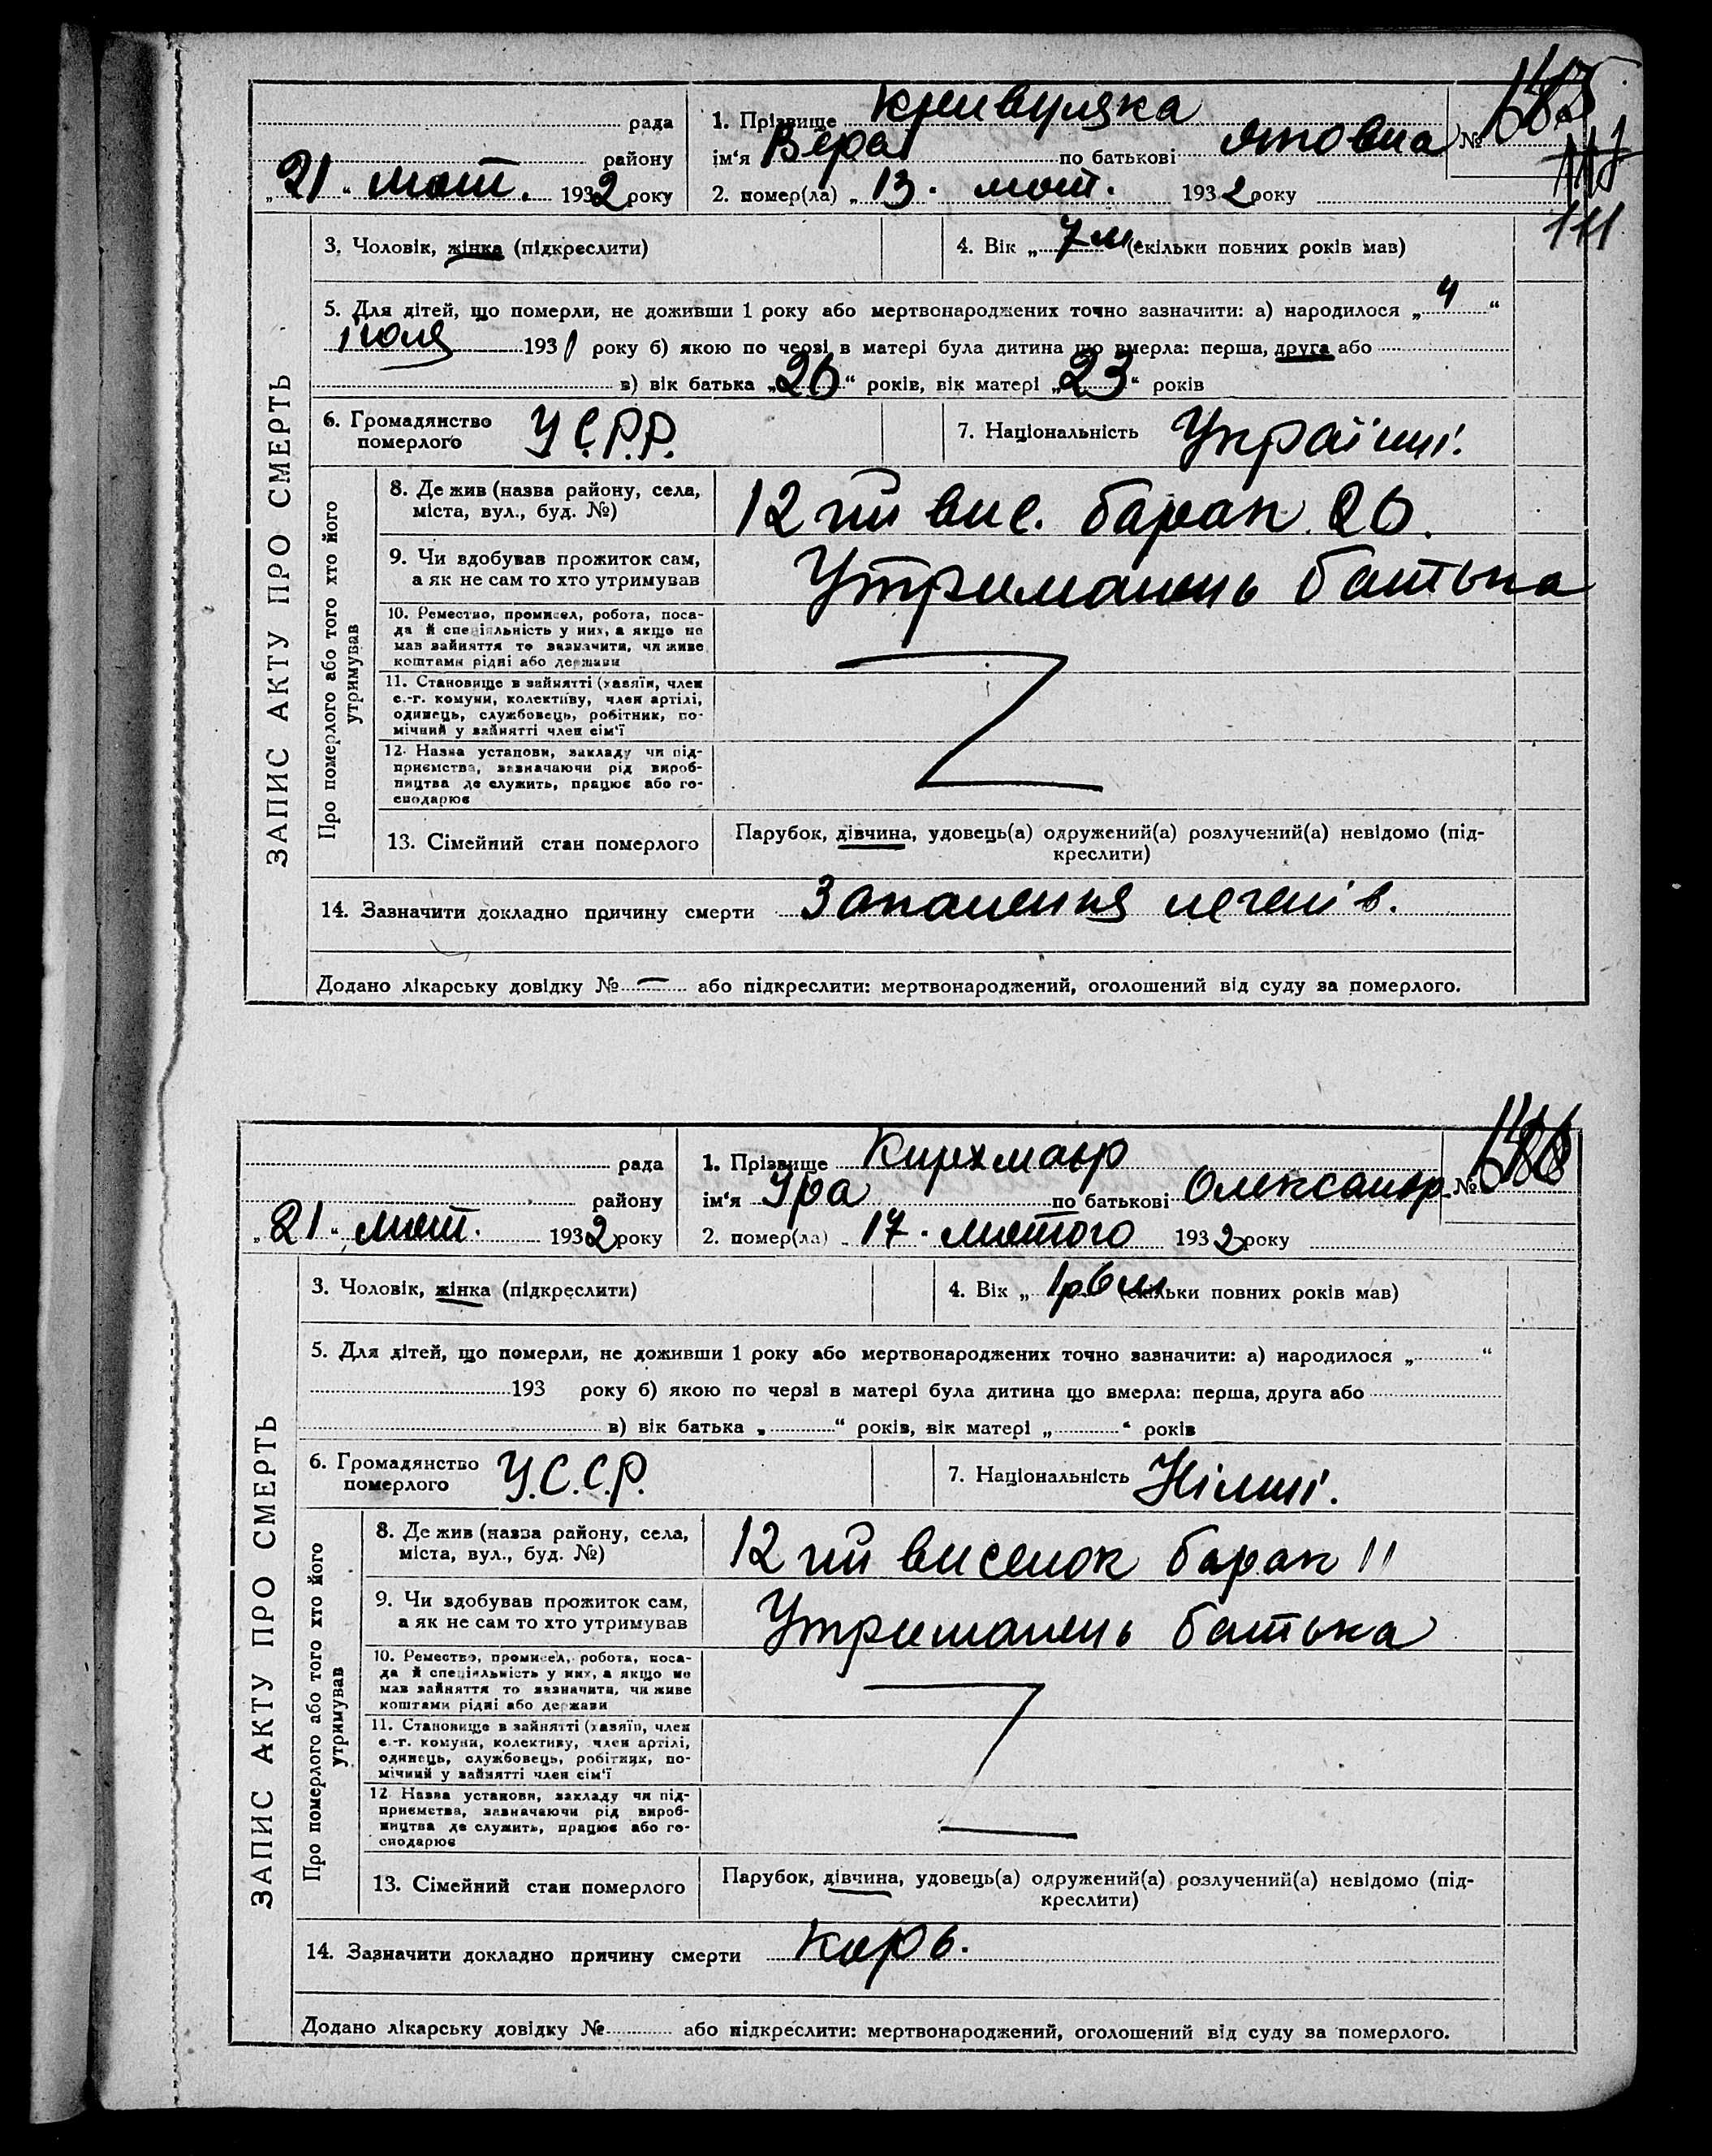 рада
району
„21“ лют. 1932 року
1. Прізвище Кривуляка
ім'я Вера по батькові
№
2. помер(ла) „13. лют. 1932 року
111
ЗАПИС АКТУ ПРО СМЕРТЬ
3. Чоловік, жінка (підкреслити)
4. Вік „7 м. (скільки повних років мав)
5. Для дітей, що померли, не доживши 1 року або мертвонароджених точно зазначити: а) народилося „4“
июля 1931 року б) якою по черзі в матері була дитина що вмерла: перша, друга або
в) вік батька „26“ років, вік матері „23“ років
6. Громадянство
померлого У.С.Р.Р.
7. Національність Україн.
Про померлого або того хто його
утримував
8. Де жив (назва району, села,
міста, вул., буд. №)
12 тий вис. барак 26.
9. Чи здобував прожиток сам,
а як не сам то хто утримував
Утриманець батька
10. Ремество, промисел, робота, поса-
да й спеціяльність у них, а якщо не
мав зайняття то зазначити, чи живе
коштами рідні або держави
11. Становище в зайнятті (хазяїн, член
с.-г. комуни, колективу, член артілі,
одинець, службовець, робітник, по-
мічний у зайнятті член сім'ї
12. Назва установи, закладу чи під-
приємства, зазначаючи рід вироб-
ництва де служить, працює або го-
сподарює
13. Сімейний стан померлого
Парубок, дівчина, удовець(а) одружений(а) розлучений(а) невідомо (під-
креслити)
14. Зазначити докладно причину смерти Запалення легенів.
Додано лікарську довідку № — або підкреслити: мертвонароджений, оголошений від суду за померлого.
рада
району
„21“ лют. 1932 року
1. Прізвище Кирхмаєр
ім'я Іра по батькові Олександр.
№
2. помер(ла) „17. лютого 1932 року
ЗАПИС АКТУ ПРО СМЕРТЬ
3. Чоловік, жінка (підкреслити)
4. Вік „1р 6 м (скільки повних років мав)
5. Для дітей, що померли, не доживши 1 року або мертвонароджених точно зазначити: а) народилося „ “
193 року б) якою по черзі в матері була дитина що вмерла: перша, друга або
в) вік батька „ “ років, вік матері „ “ років
6. Громадянство
померлого У.С.С.Р.
7. Національність Німці.
Про померлого або того хто його
утримував
8. Де жив (назва району, села,
міста, вул., буд. №)
12 тий виселок барак 11
9. Чи здобував прожиток сам,
а як не сам то хто утримував
Утриманець батька
10. Ремество, промисел, робота, поса-
да й спеціяльність у них, а якщо не
мав зайняття то зазначити, чи живе
коштами рідні або держави
11. Становище в зайнятті (хазяїн, член
с.-г. комуни, колективу, член артілі,
одинець, службовець, робітник, по-
мічний у зайнятті член сім'ї
12. Назва установи, закладу чи під-
приємства, зазначаючи рід вироб-
ництва де служить, працює або го-
сподарює
13. Сімейний стан померлого
Парубок, дівчина, удовець(а) одружений(а) розлучений(а) невідомо (під-
креслити)
14. Зазначити докладно причину смерти Корь.
Додано лікарську довідку № або підкреслити: мертвонароджений, оголошений від суду за померлого.